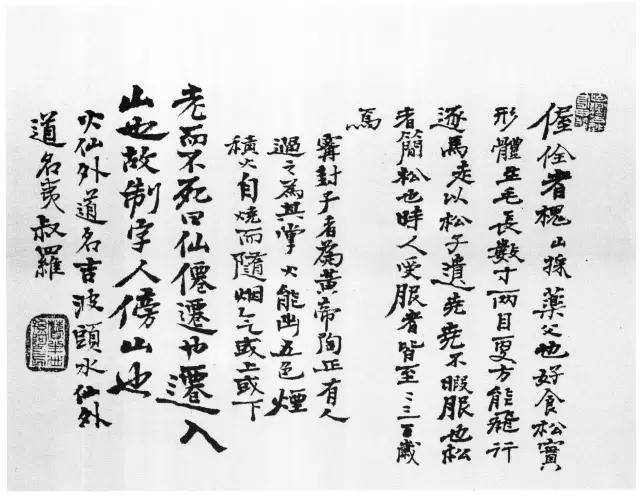 偓佺者槐山採藥父也好食松實
形體生毛長数寸兩目更方能飛行
逐馬走以松子遺堯堯不暇服也松
者簡松也時人受服者皆至二三百歲
焉
甯封子者為黃帝陶正有人
過之為其掌火能出五色煙
積火自燒而隨烟气或上或下
老而不死曰仙僊遷也遷入
山也故制字人傍山也
火仙外道名吉波頭水仙外
道名夷叔羅